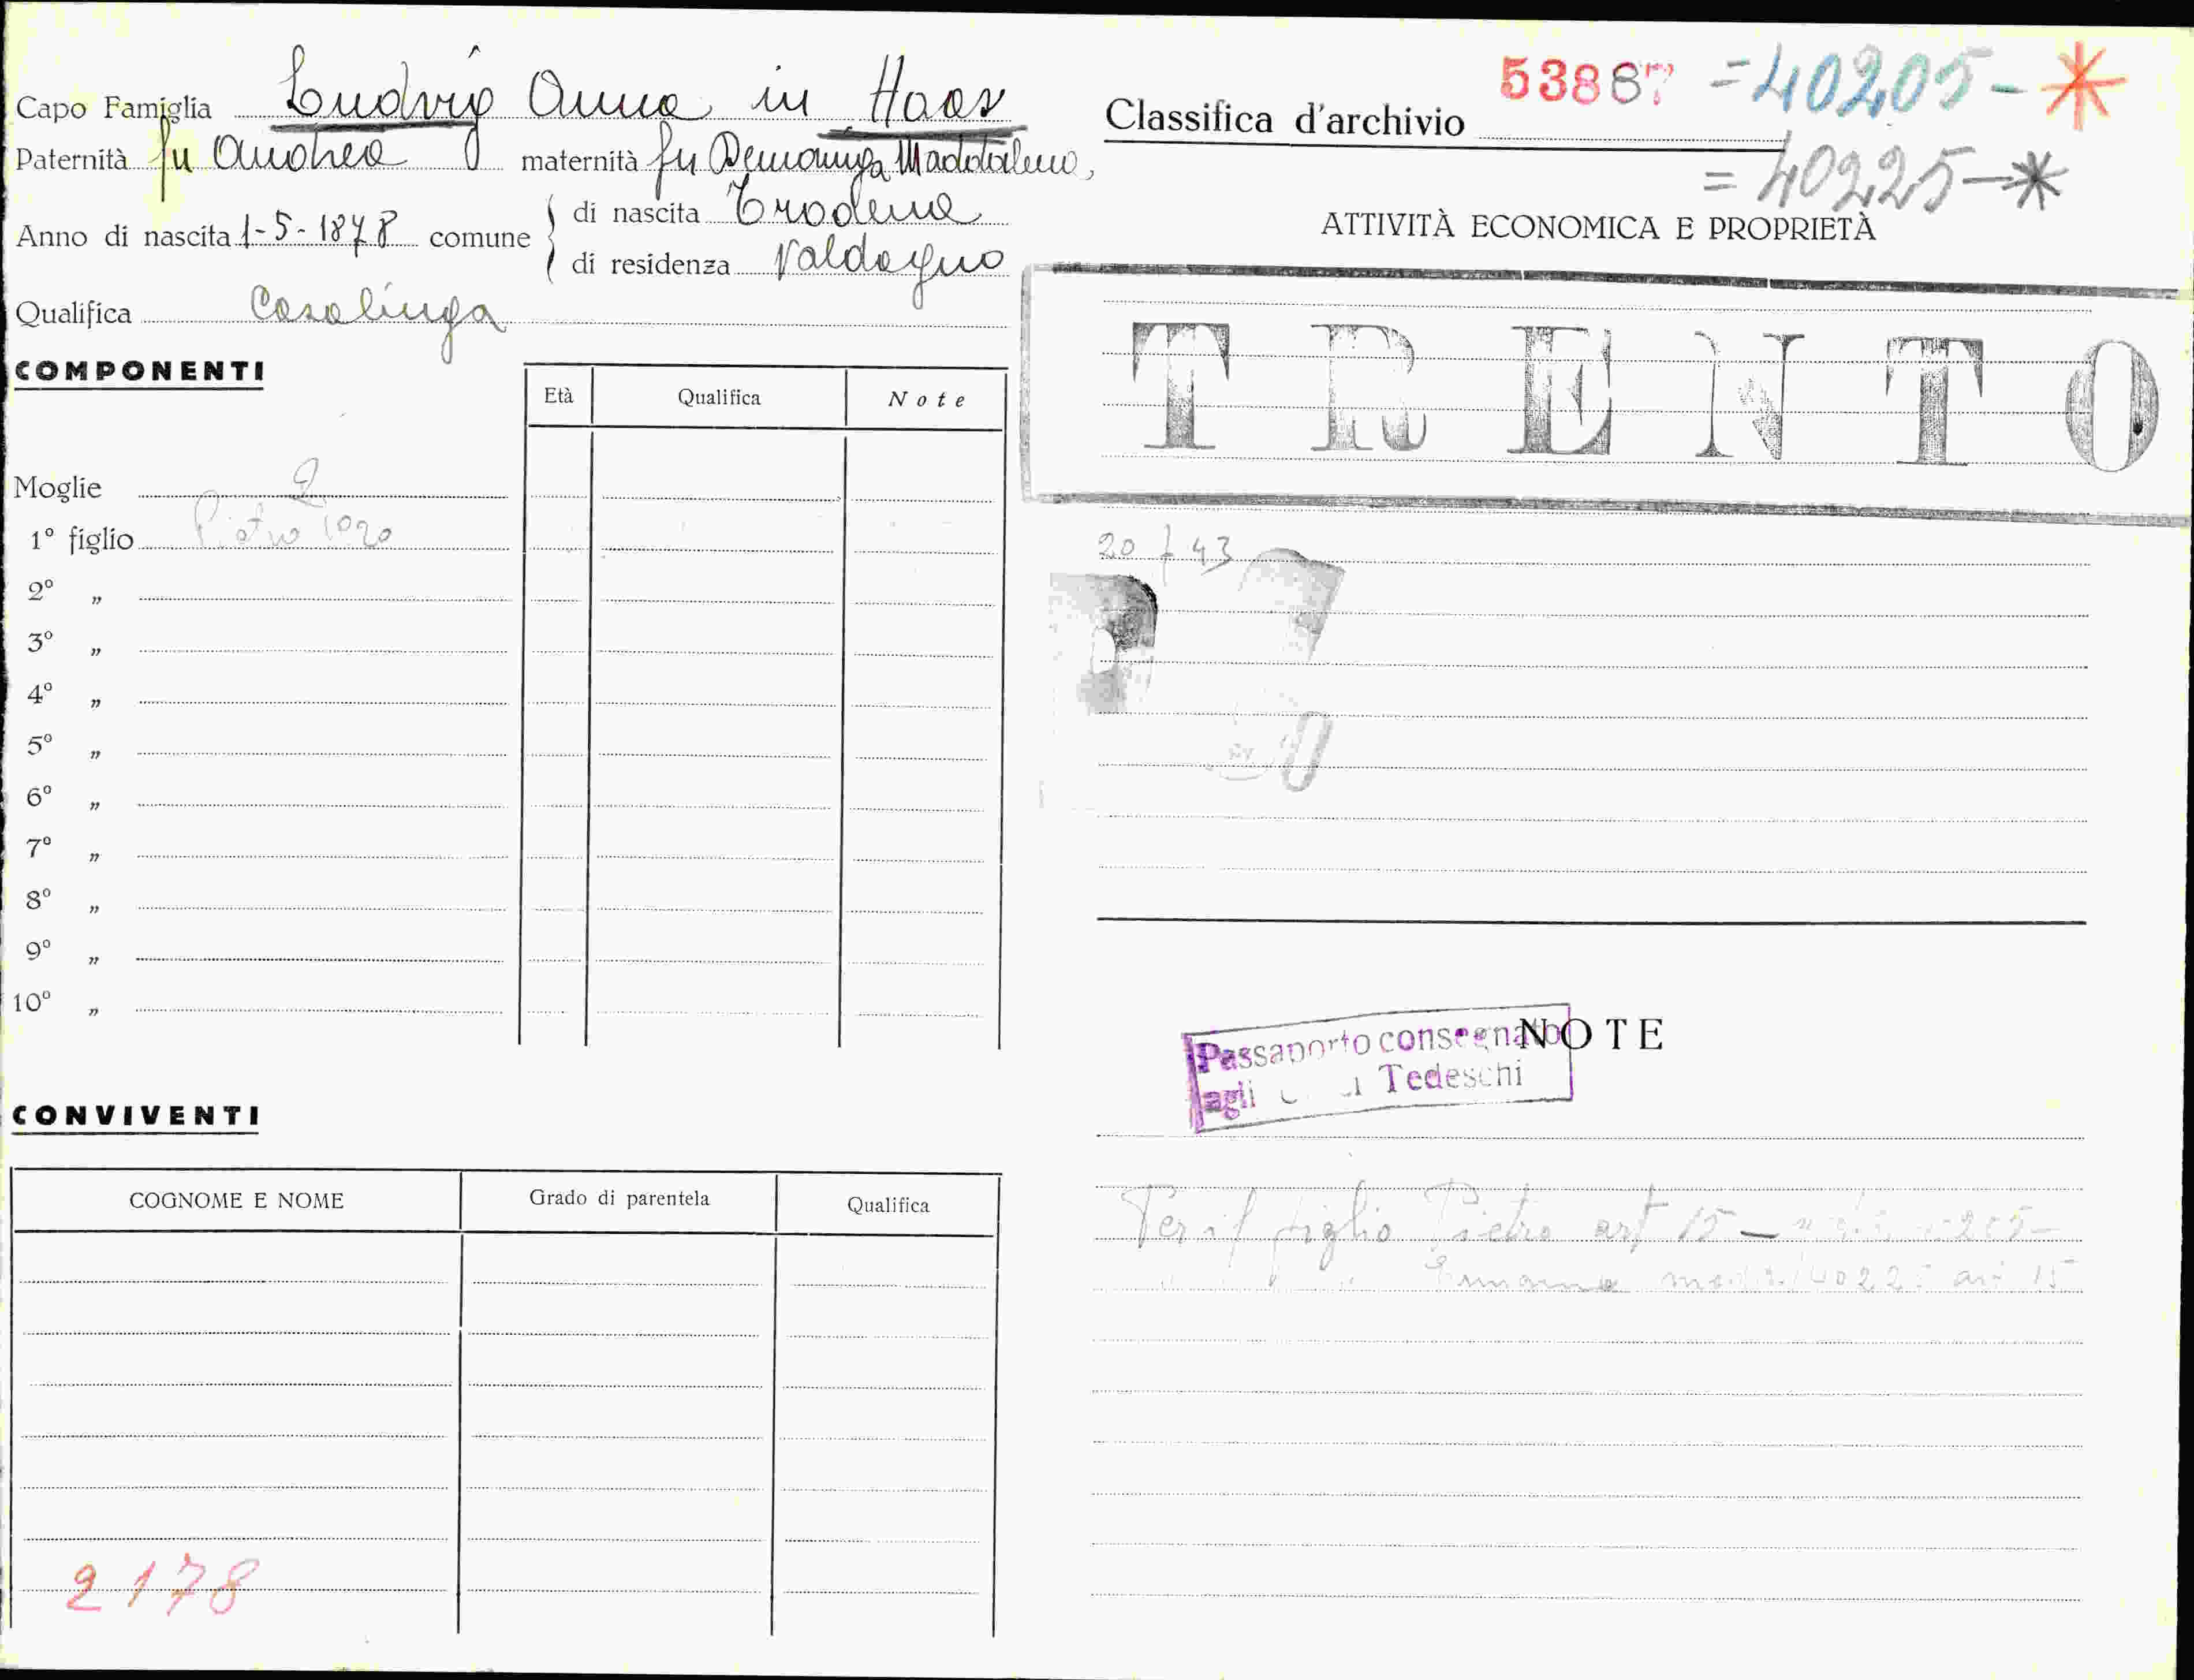 Capo Famiglia Ludvig Anna in Haas
Paternità fu Andrea maternità fu Maddalena
Anno di nascita 1-5-1878 comune
di nascita Trodena
di residenza Valdagno
Qualifica Casalinga
COMPONENTI
Età Qualifica Note
Moglie
1° figlio Pietro 1920
2° „
3° „
4° „
5° „
6° „
7° „
8° „
9° „
10° „
CONVIVENTI
COGNOME E NOME Grado di parentela Qualifica
2178
53887 =40205-*
Classifica d'archivio
=40225-*
ATTIVITÀ ECONOMICA E PROPRIETÀ
TRENTO
20 43
NOTE
Passaporto consegnato
agli Tedeschi
Per il figlio Pietro art 15 -
40225 art 15